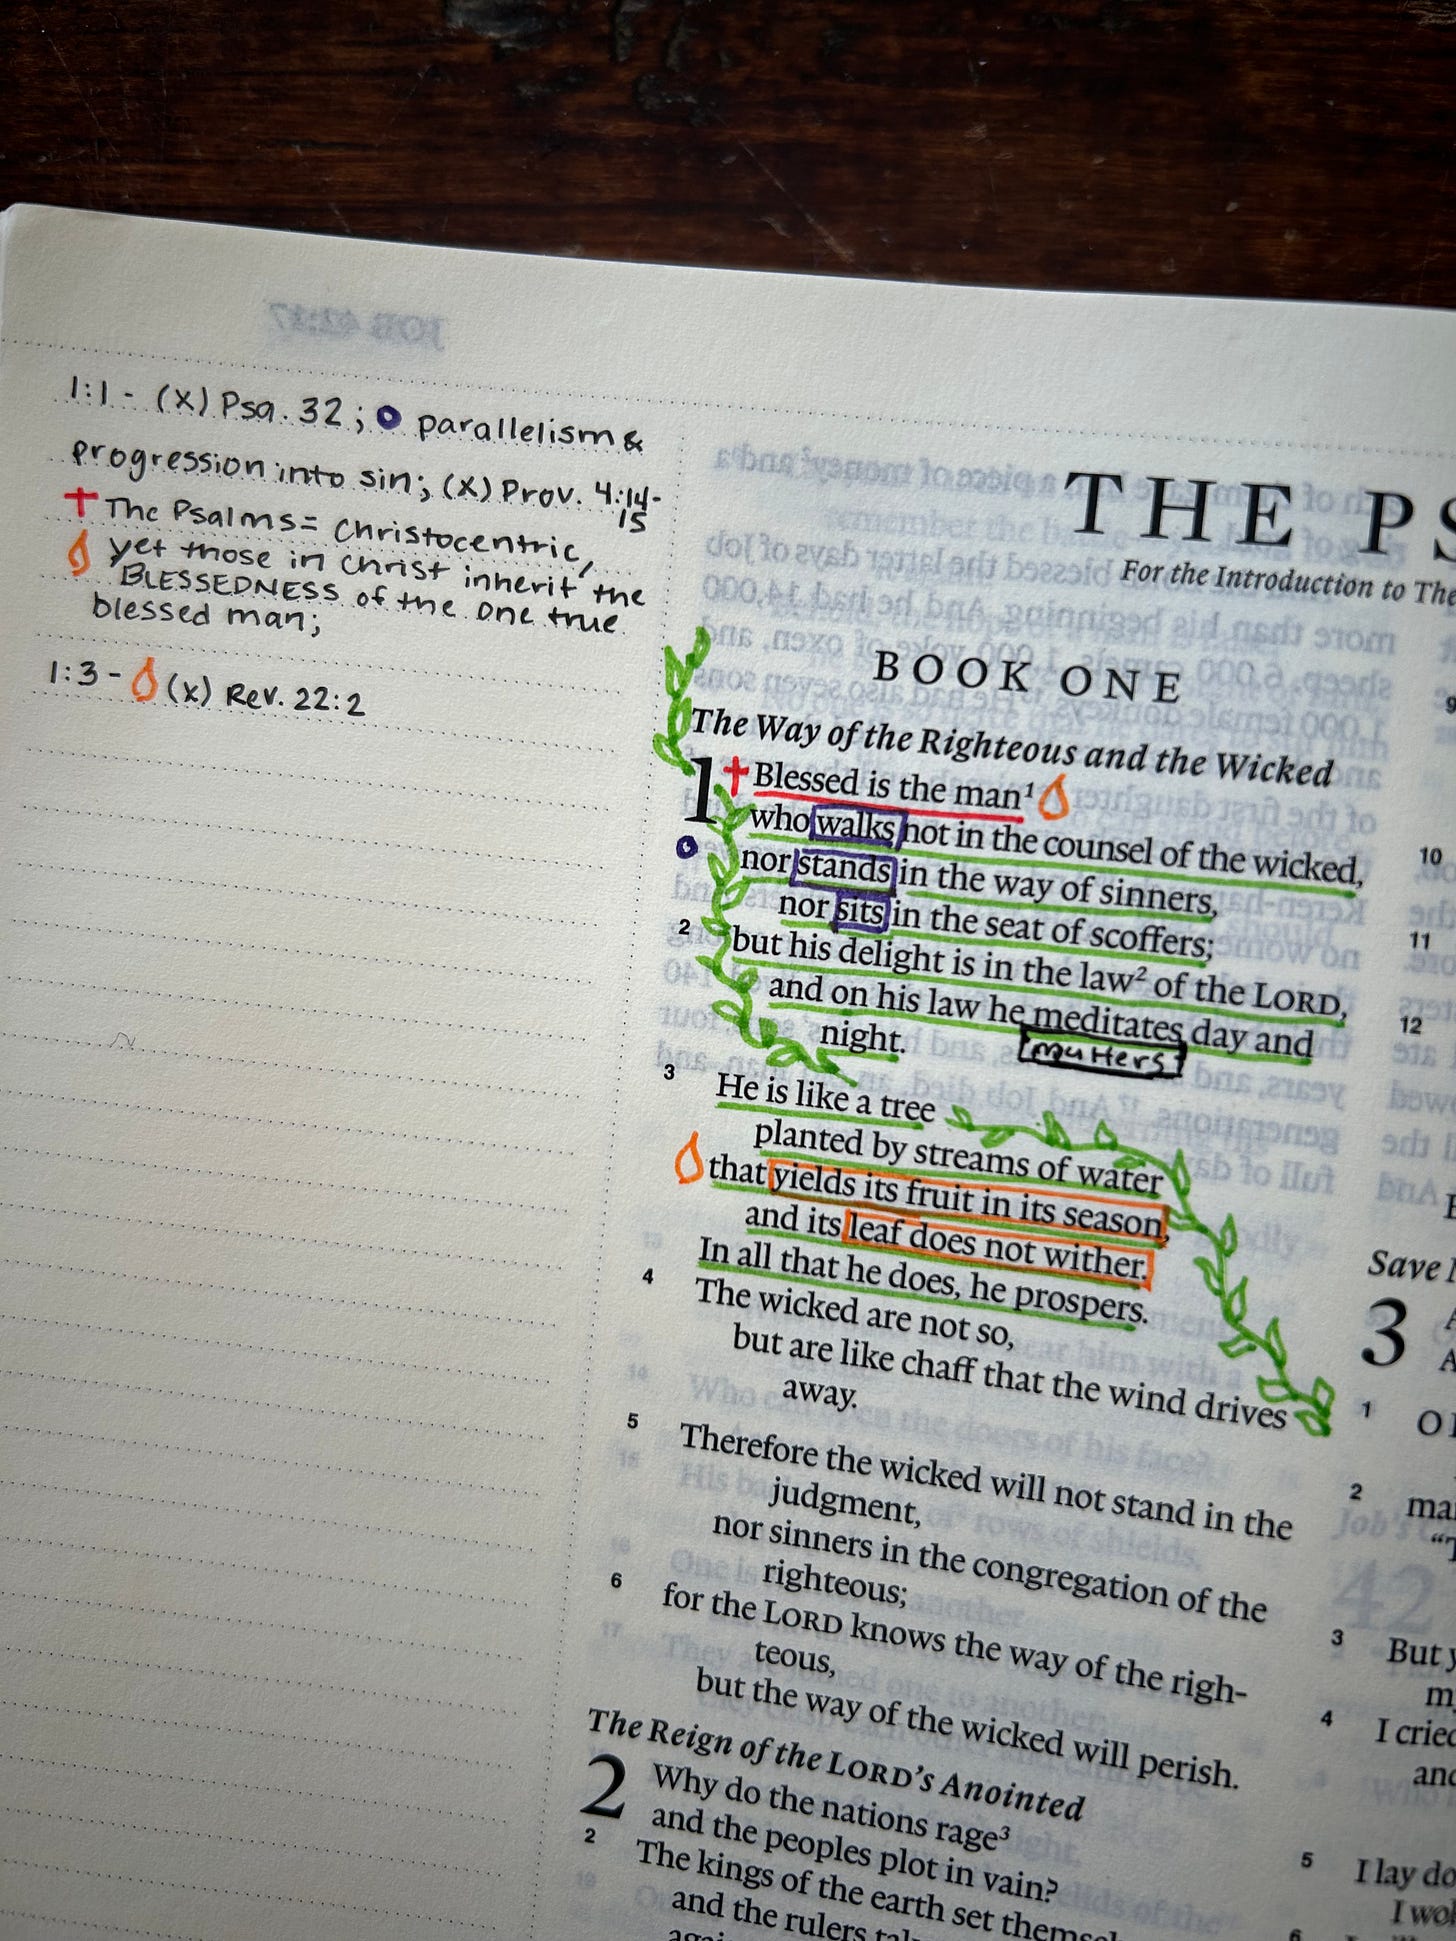 JOB 42:17
1:1 - (x) Psa. 32; parallelism &
progression into sin; (x) Prov. 4:14-
15
The Psalms = Christocentric,
yet those in Christ inherit the
BLESSEDNESS of the one true
blessed man;
1:3 - (x) Rev. 22:2
THE PS
For the Introduction to The
BOOK ONE
The Way of the Righteous and the Wicked
1 Blessed is the man¹
who walks not in the counsel of the wicked,
nor stands in the way of sinners,
nor sits in the seat of scoffers;
2 but his delight is in the law² of the LORD,
and on his law he meditates day and
night.
mutters
3 He is like a tree
planted by streams of water
that yields its fruit in its season,
and its leaf does not wither.
In all that he does, he prospers.
4 The wicked are not so,
but are like chaff that the wind drives
away.
5 Therefore the wicked will not stand in the
judgment,
nor sinners in the congregation of the
righteous;
6 for the LORD knows the way of the righ-
teous,
but the way of the wicked will perish.
The Reign of the LORD's Anointed
2 Why do the nations rage³
and the peoples plot in vain?
2 The kings of the earth set themsel
and the rulers
9
10
11
12
Save
3
1 O
2 ma
3 But y
m
4 I cried
and
5 I lay do
I wo
6